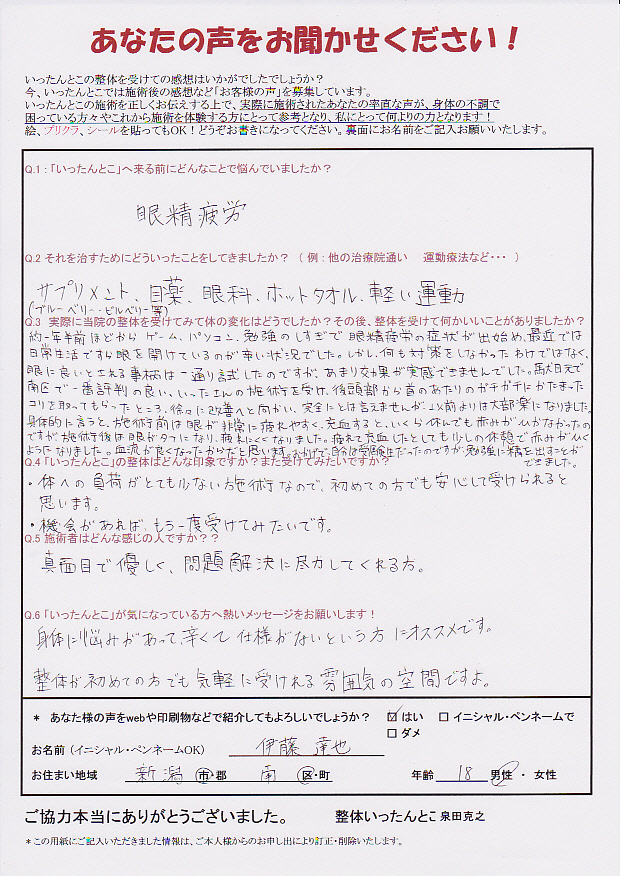 あなたの声をお聞かせください！
いったんとこの整体を受けての感想はいかがでしたでしょうか？
今、いったんとこでは施術後の感想など「お客様の声」を募集しています。
いったんとこの施術を正しくお伝えする上で、実際に施術されたあなたの率直な声が、身体の不調で
困っている方々やこれから施術を体験する方にとって参考となり、私にとって何よりの力となります！
絵、プリクラ、シールを貼ってもOK！どうぞお書きになってください。裏面にお名前をご記入お願いいたします。
Q.1：「いったんとこ」へ来る前にどんなことで悩んでいましたか？
眼精疲労
Q.2 それを治すためにどういったことをしてきましたか？ （例：他の治療院通い 運動療法など・・・ ）
サプリメント、目薬、眼科、ホットタオル、軽い運動
(ブルーベリー・ビルベリー等)
Q.3 実際に当院の整体を受けてみて体の変化はどうでしたか？その後、整体を受けて何かいいことがありましたか？
約一年半前ほどからゲーム、パソコン、勉強のしすぎで眼精疲労の症状が出始め、最近では
日常生活ですら眼を開けているのが辛い状況でした。しかし、何も対策をしなかったわけではなく、
眼に良いと云れる事柄は一通り試したのですが、あまり効果が実感できませんでした。駄目元で
南区で一番評判の良い、いったんの施術を受け、後頭部から首のあたりのガチガチにかたまった
コリを取ってもらったところ、徐々に改善へと向かい、完全にとは言えませんが、以前よりは大部楽になりました。
具体的に言うと、施術前は眼が非常に疲れやすく、充血すると、いくら休んでも赤みがひかなかったの
ですが、施術後は眼がタフになり、疲れにくくなりました。疲れて充血したとしても少しの休憩で赤みがひく
ようになりました。血流が良くなったからだと思います。おかげで、自分は受験生だったのですが、勉強に精を出すことが
できました。
Q.4「いったんとこ」の整体はどんな印象ですか？また受けてみたいですか？
・体への負荷がとても少ない施術なので、初めての方でも安心して受けられると
思います。
・機会があれば、もう一度受けてみたいです。
Q.5 施術者はどんな感じの人ですか？？
真面目で優しく、問題解決に尽力してくれる方。
Q.6「いったんとこ」が気になっている方へ熱いメッセージをお願いします！
身体に悩みがあって、辛くて仕様がないという方にオススメです。
整体が初めての方でも気軽に受けれる雰囲気の空間ですよ。
＊ あなた様の声をwebや印刷物などで紹介してもよろしいでしょうか？ ☑ はい □ イニシャル・ペンネームで
□ ダメ
お名前（イニシャル・ペンネームOK） 伊藤 達也
お住まい地域 新潟 市・郡 南 区・町 年齢 18 男性 ・ 女性
ご協力本当にありがとうございました。 整体いったんとこ 泉田克之
＊この用紙にご記入いただきました情報は、ご本人様からのお申し出により訂正・削除いたします。